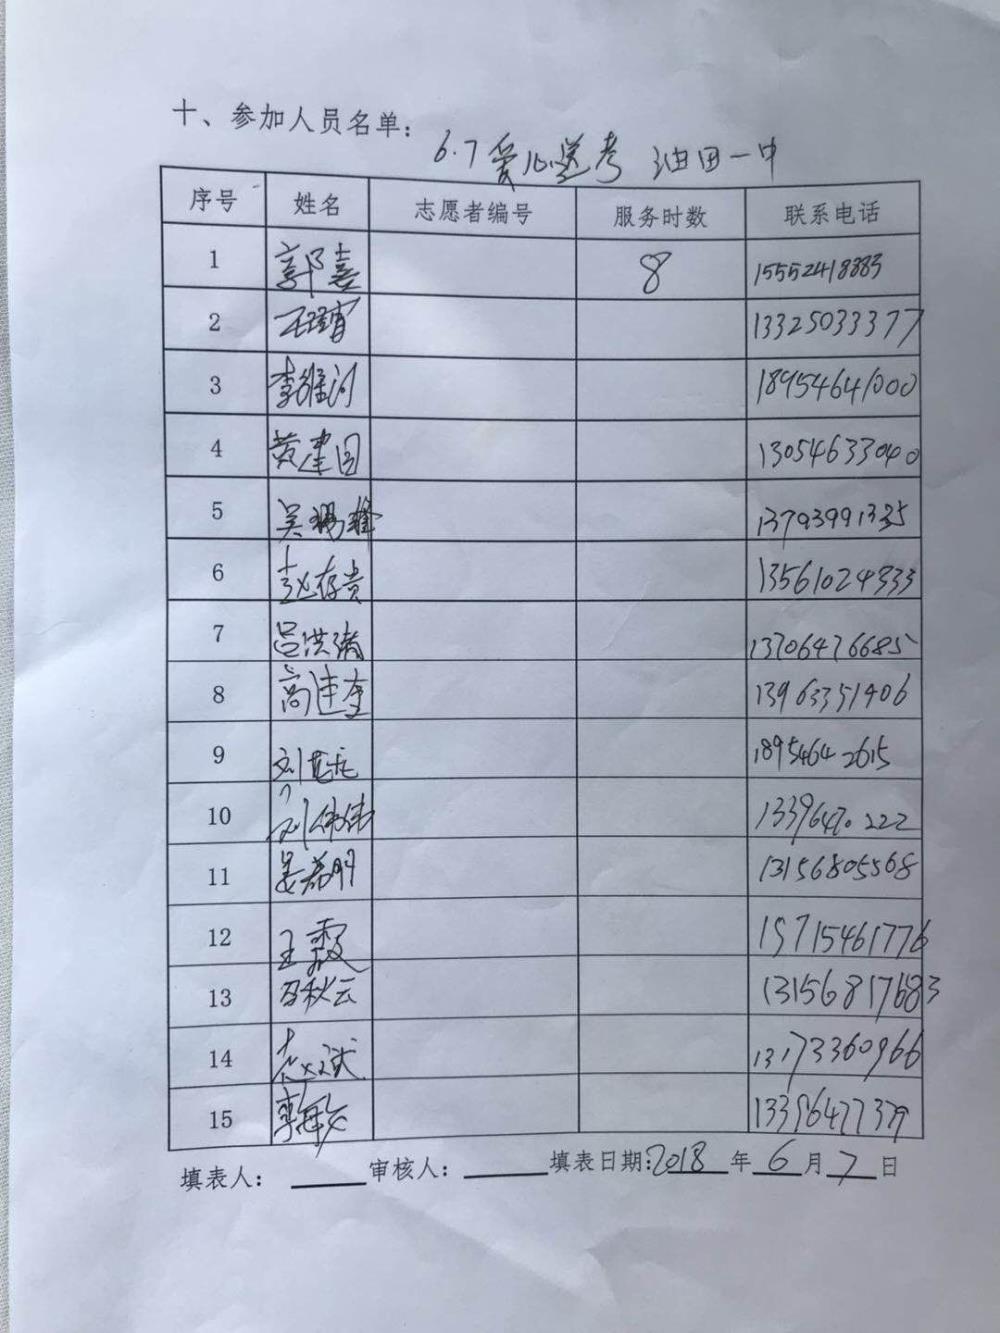 十、参加人员名单：
6.7爱心送考 油田一中
序号 姓名 志愿者编号 服务时数 联系电话
1 郭喜 8 15552418883
2 13325033377
3 李维河 18954641000
4 黄建国 13054633040
5 吴 13793991335
6 赵存贵 13561024333
7 吕洪涛 13706476685
8 高连奎 13963351406
9 刘 18954642615
10 刘伟伟 1339640222
11 姜希明 13156805568
12 王霞 15715461776
13 秋云 13156817683
14 赵斌 13173360966
15 李 13396477379
填表人： 审核人： 填表日期:2018年6月7日